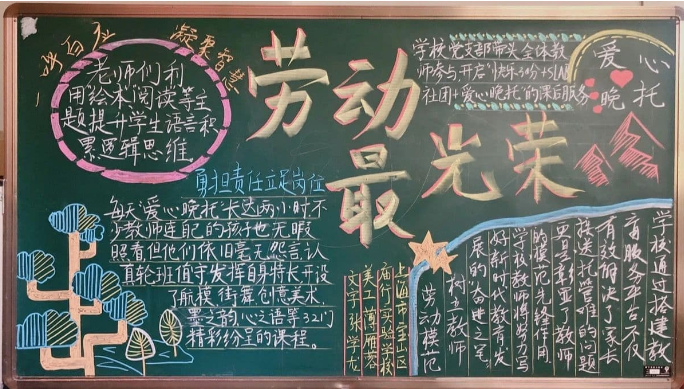 一呼百应
凝聚智慧
老师们利
用绘本阅读等主
题提升学生语言积
累逻辑思维
劳动
最光荣
学校党支部带头全体教
师参与,开启"快乐30分+5LAB
社团+爱心晚托"的课后服务
爱心
晚托
勇担责任立足岗位
每天爱心晚托长达两小时,不
少教师连自己的孩子也无暇
照看但他们依旧毫无怨言,认
真轮班值守发挥自身特长开设
了航模、街舞、创意美术、
墨之韵、心之语等32门
精彩纷呈的课程。
上海市宝山区
庙行实验学校
美工:傅雁蓉
文字:张学龙
学校通过搭建教
育服务平台,不仅
有效解决了家长
接送托管难的问题
更是彰显了教师
的模范先锋作用
学校教师将努力写
好新时代教育发
展的"奋进之笔"
树立教师
劳动模范